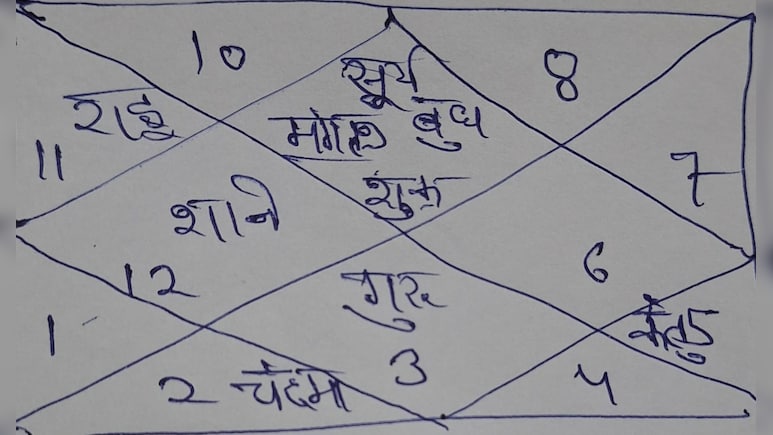 10
सूर्य
8
राहू
मंगल बुध
11
7
शुक्र
शनि
6
12
गुरु
केतु 5
1
3
2 चंद्रमा
4